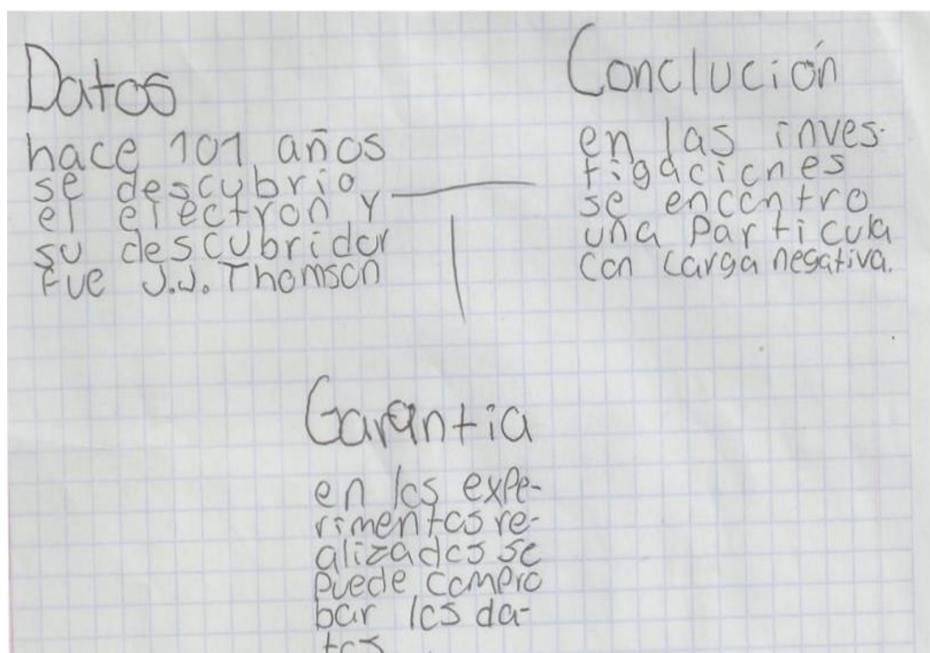 Datos
hace 101 años
se descubrio
el electron y
su descubridor
fue J.J. Thomson
Conclución
en las inves-
tigaciones
se encontro
una Particula
con carga negativa.
Garantia
en los expe-
rimentos re-
alizados se
puede compro
bar los da-
tos